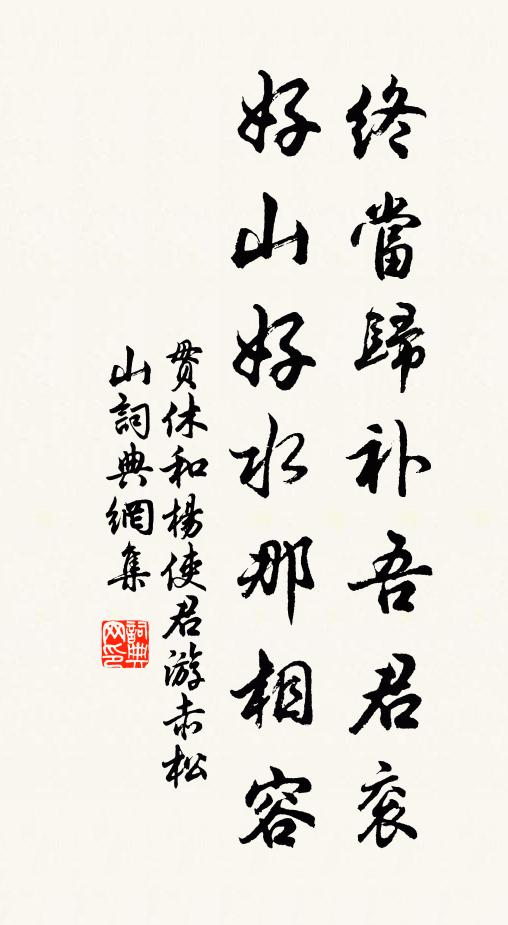 終當歸补吾君衮
好山好水那相容
貫休和楊使君游赤松
山詞典網集
詞典网印